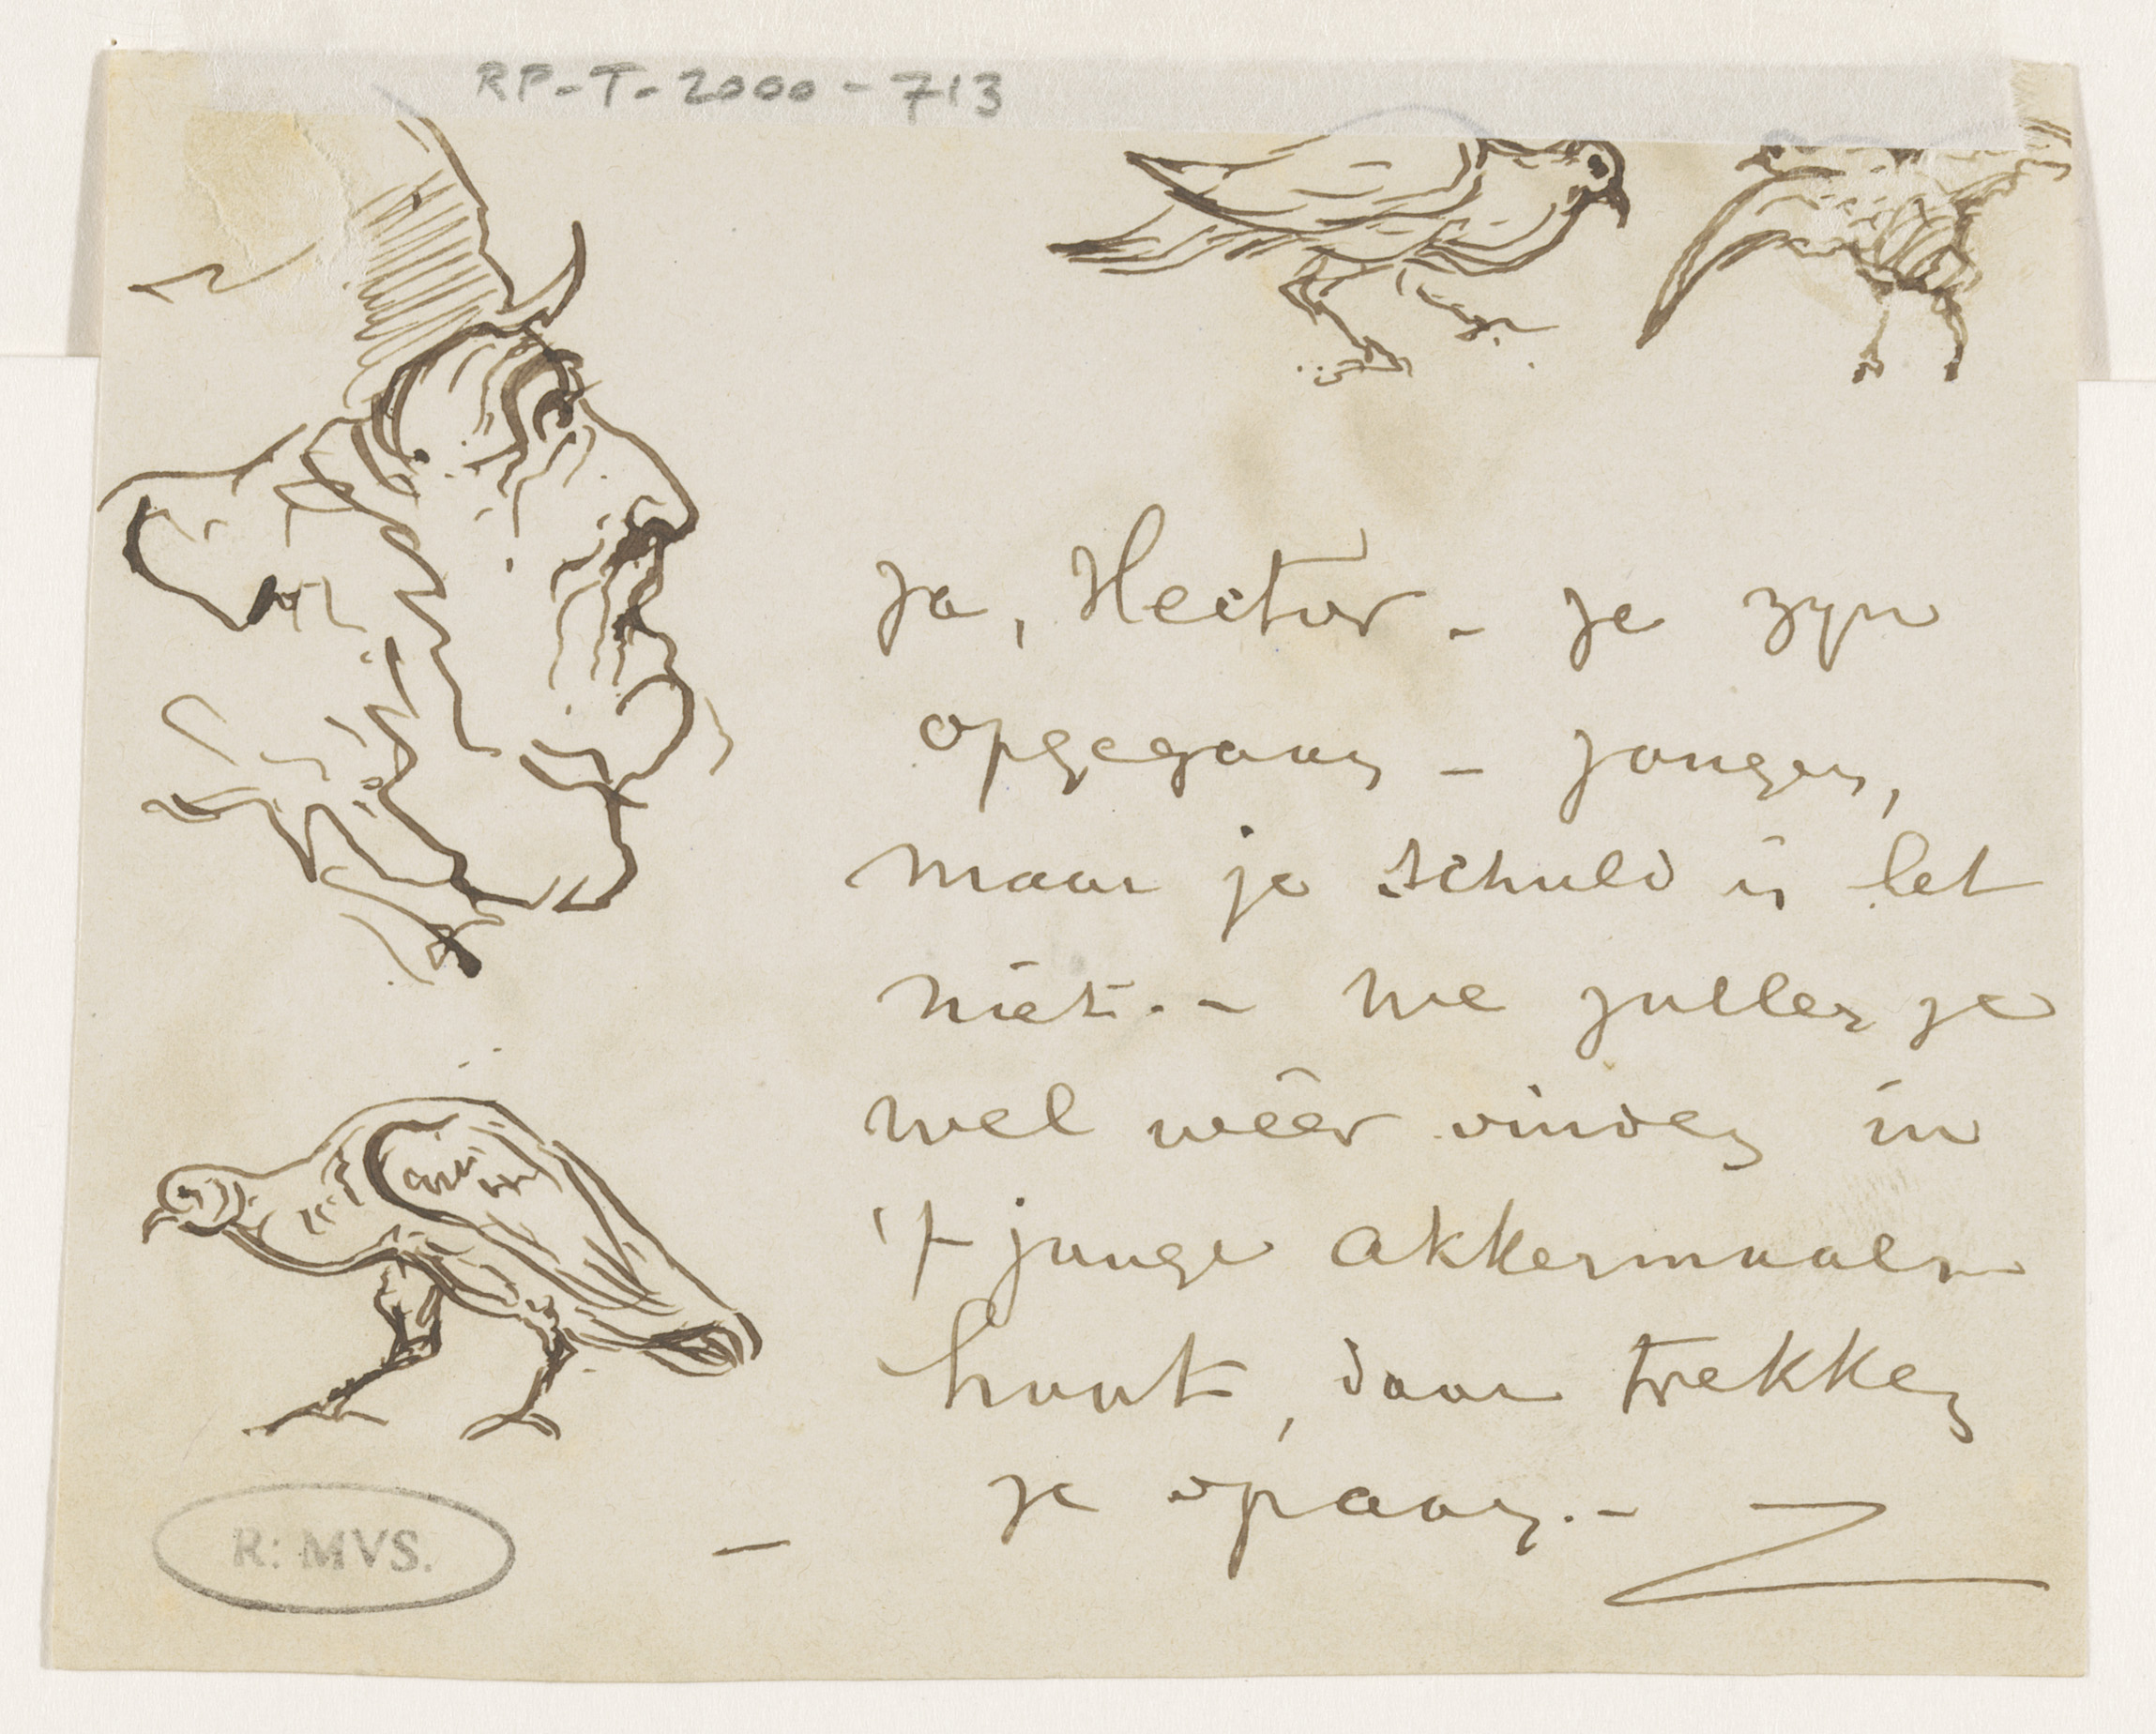 RP-T-2000-713
Ja, Hector - ze zyn
opgegaan - jongen,
maar je schuld is het
niet.- We zullen ze
wel wêer vinden in
't jonge akkermaals
hout, daar trekken
ze opaan.-
R: MVS.